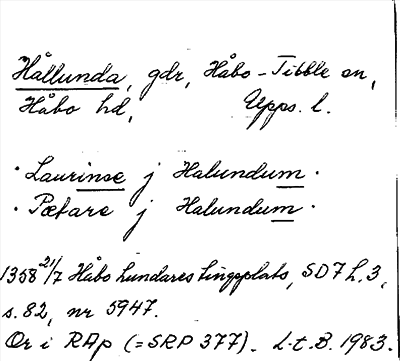 Hållunda, gdr, Håbo-Tibble sn,
Håbo hd, Upps. l.
· Laurinse j Halundum ·
· Pætare j Halundum ·
1358 21/7 Håbo hundares tingsplats, SD 7 h. 3,
s. 82, nr 5947.
Or i RAp (= SRP 377). L.t.B. 1983.